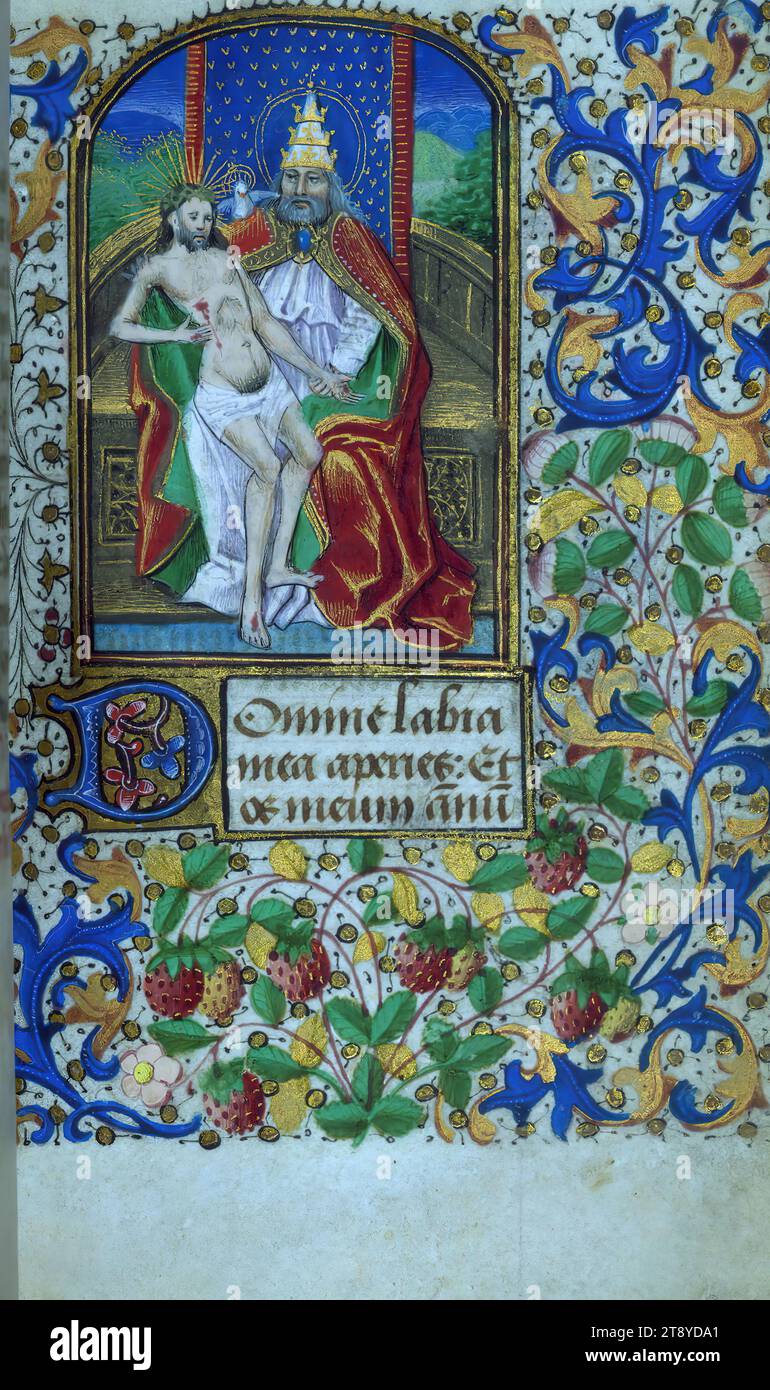 Domine labia
mea aperies: Et
os meum ānū
alamy
Image ID: 2T8YDA1
www.alamy.com